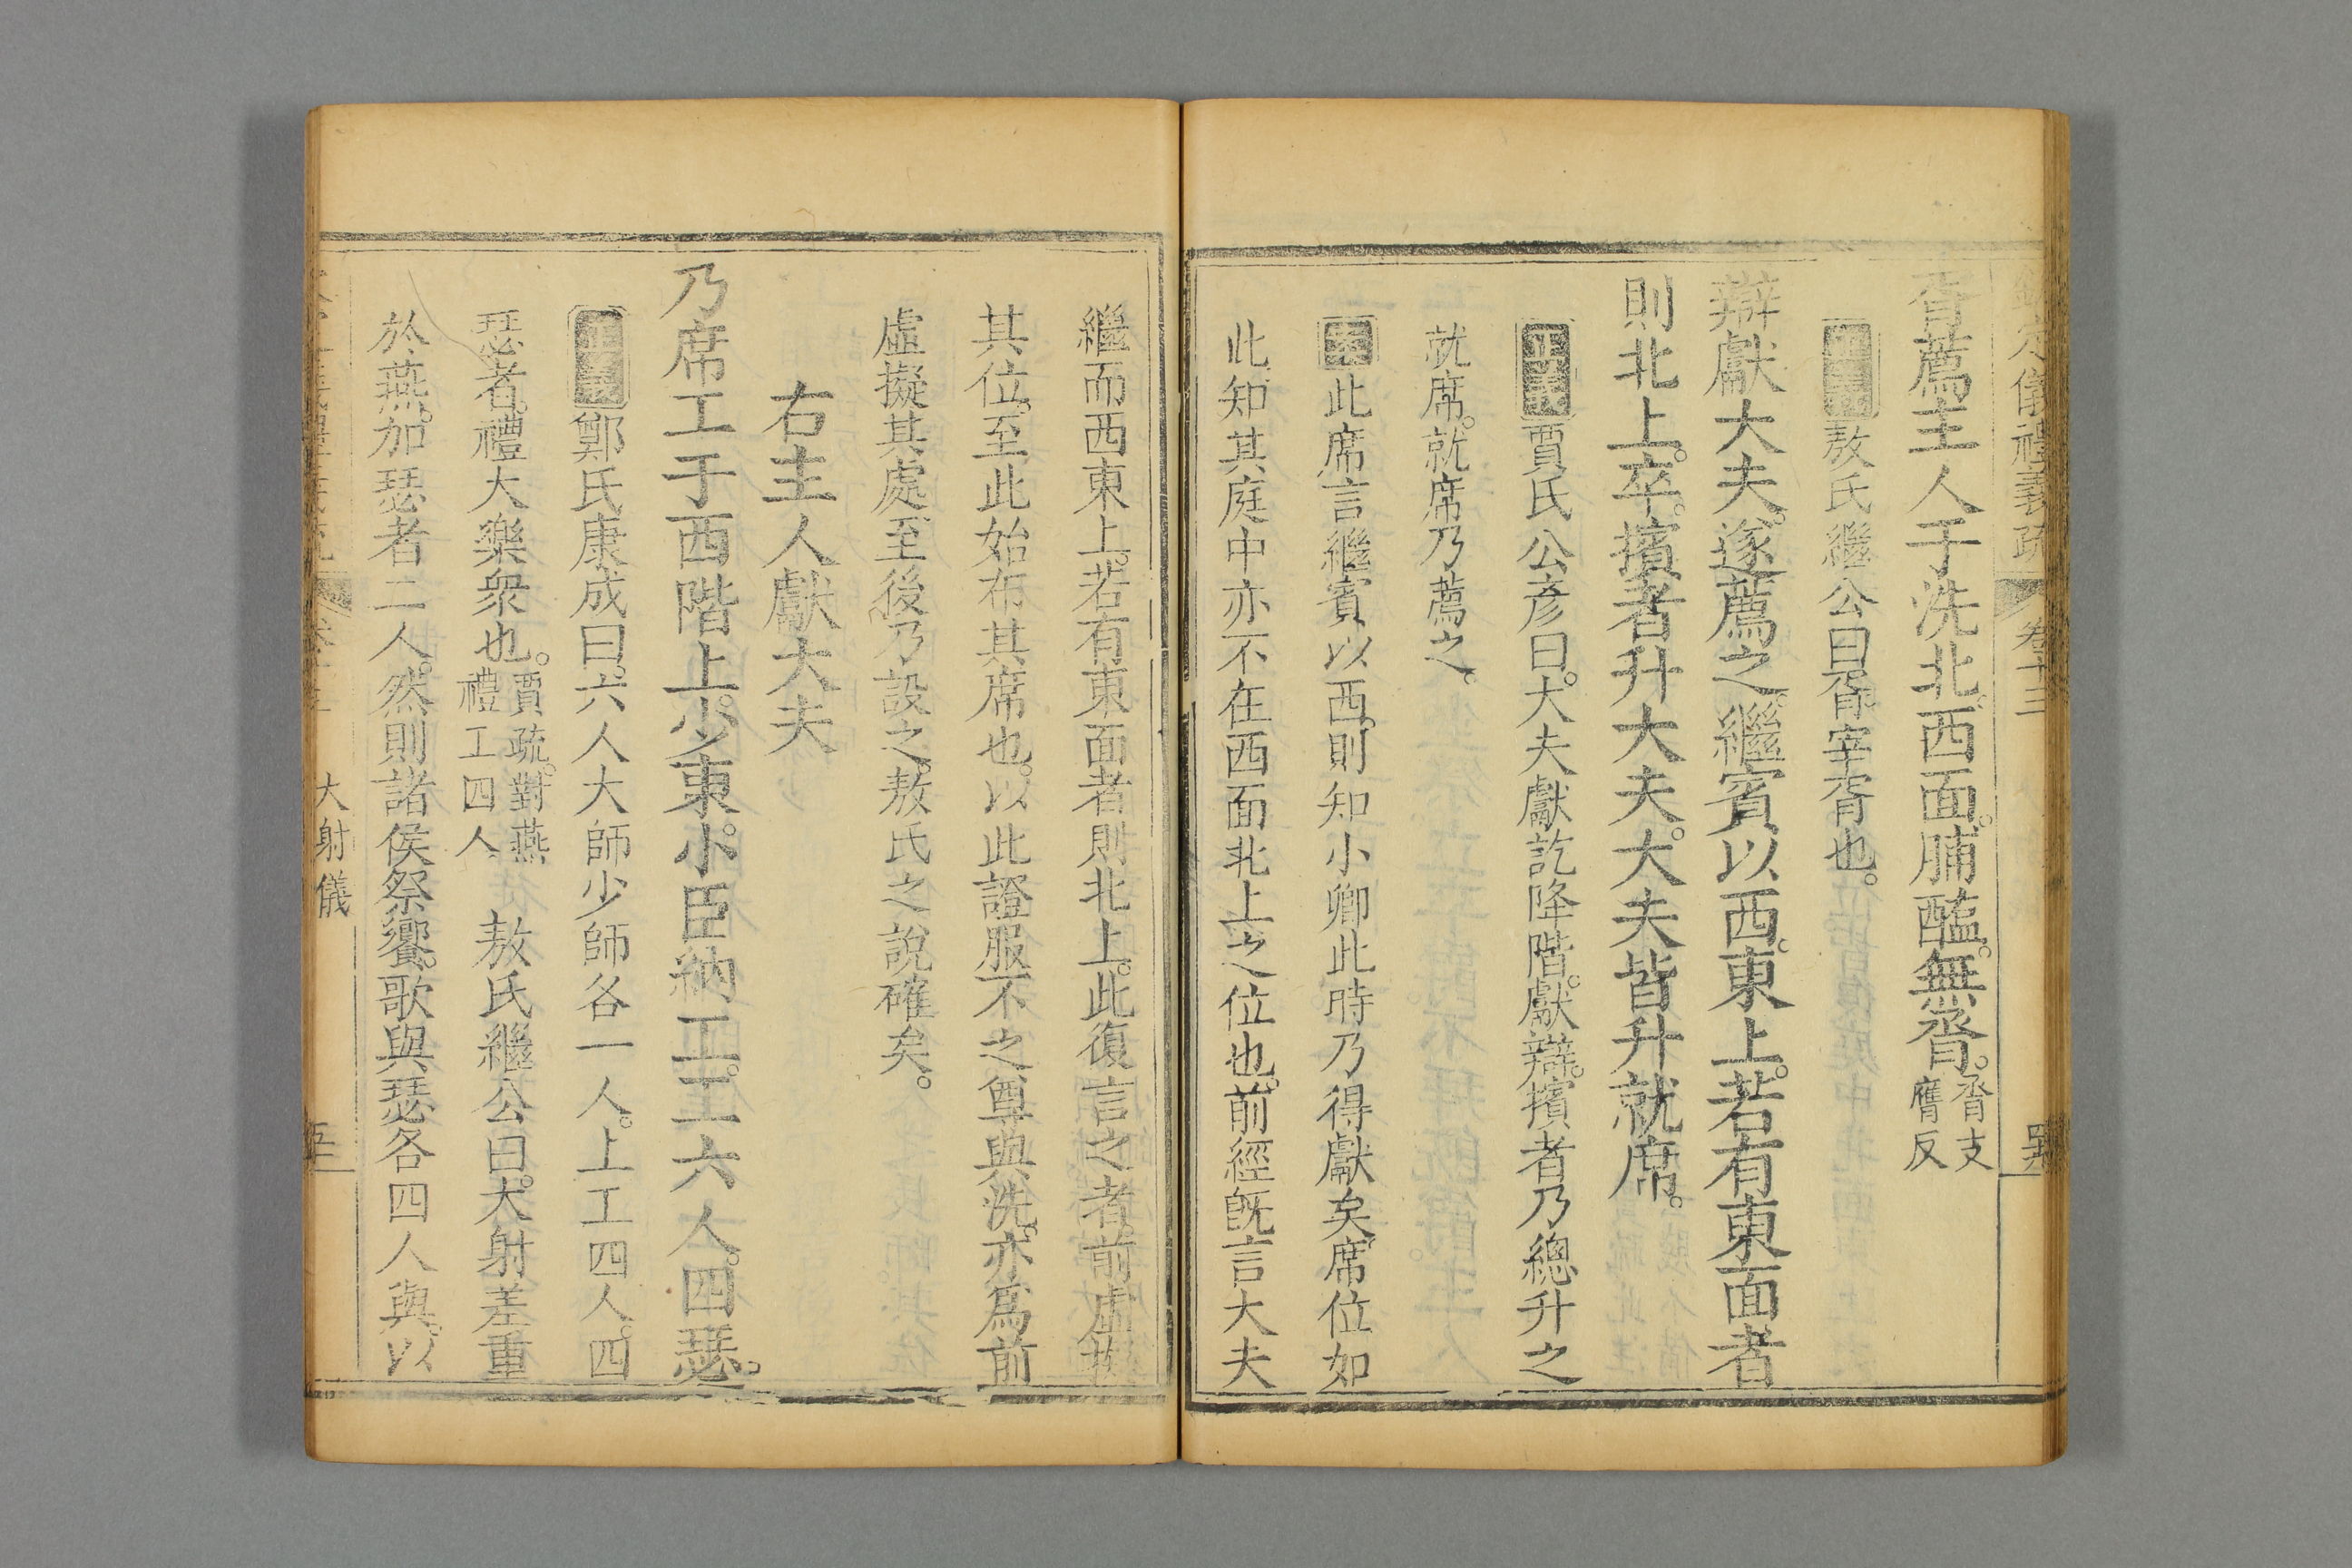 欽定儀禮義疏 卷十三
胥薦主人于洗北西面脯醢無脀脀支
膺反
正義敖氏繼公曰胥宰胥也
辯獻大夫遂薦之繼賓以西東上若有東面者
則北上卒擯者升大夫大夫皆升就席
正義賈氏公彥曰大夫獻訖降階獻辯擯者乃總升之
就席就席乃薦之
案此席言繼賓以西則知小卿此時乃得獻矣席位如
此知其庭中亦不在西面北上之位也前經旣言大夫
繼而西東上若有東面者則北上此復言之者前虛擬
其位至此始布其席也以此證服不之尊與洗亦爲前
虛擬其處至後乃設之敖氏之說確矣
右主人獻大夫
乃席工于西階上少東小臣納工工六人四瑟
正義鄭氏康成曰六人大師少師各一人上工四人四
瑟者禮大樂衆也賈疏對燕
禮工四人 敖氏繼公曰大射差重
於燕加瑟者二人然則諸侯祭饗歌與瑟各四人與以
大射儀